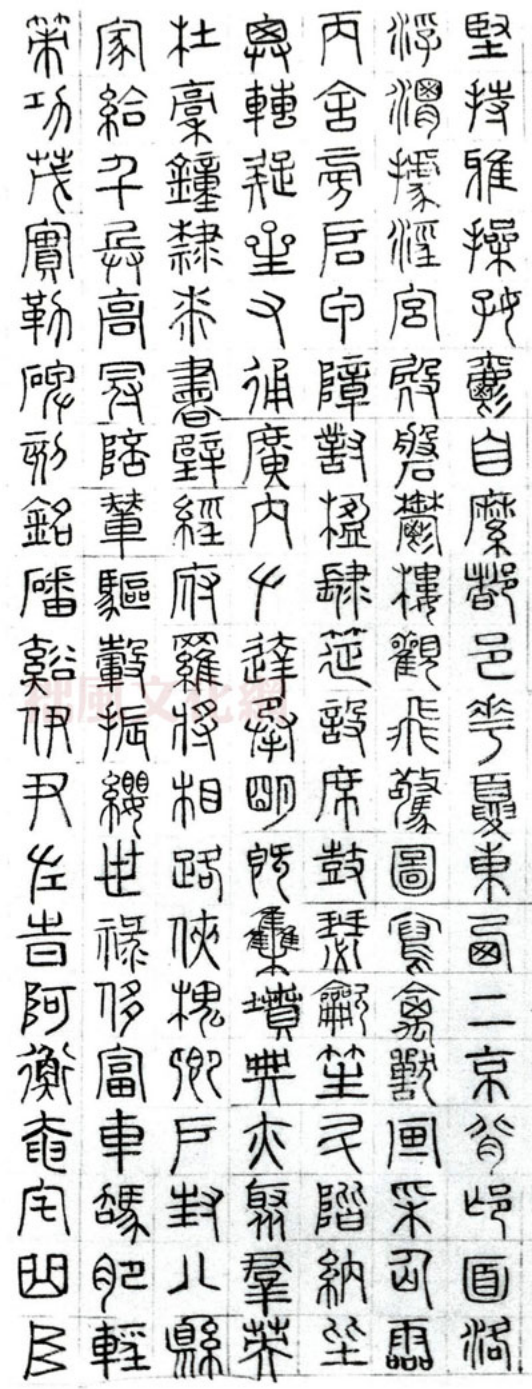 堅持雅操好爵自縻都邑華夏東西二京背邙面洛
浮渭據涇宮殿磐鬱樓觀飛驚圖寫禽獸畫采仙靈
丙舍旁启甲障對楹肆筵設席鼓瑟龡笙升階納陛
弁轉疑星右通廣内左達承明既集墳典亦聚羣英
杜稾鐘隸桼書壁經府羅將相路俠槐卿戶封八縣
家給千兵高冠陪輦驅轂振纓世祿侈富車駕肥輕
策功茂實勒碑刻銘磻谿伊尹左時阿衡奄宅曲阜
風文化網